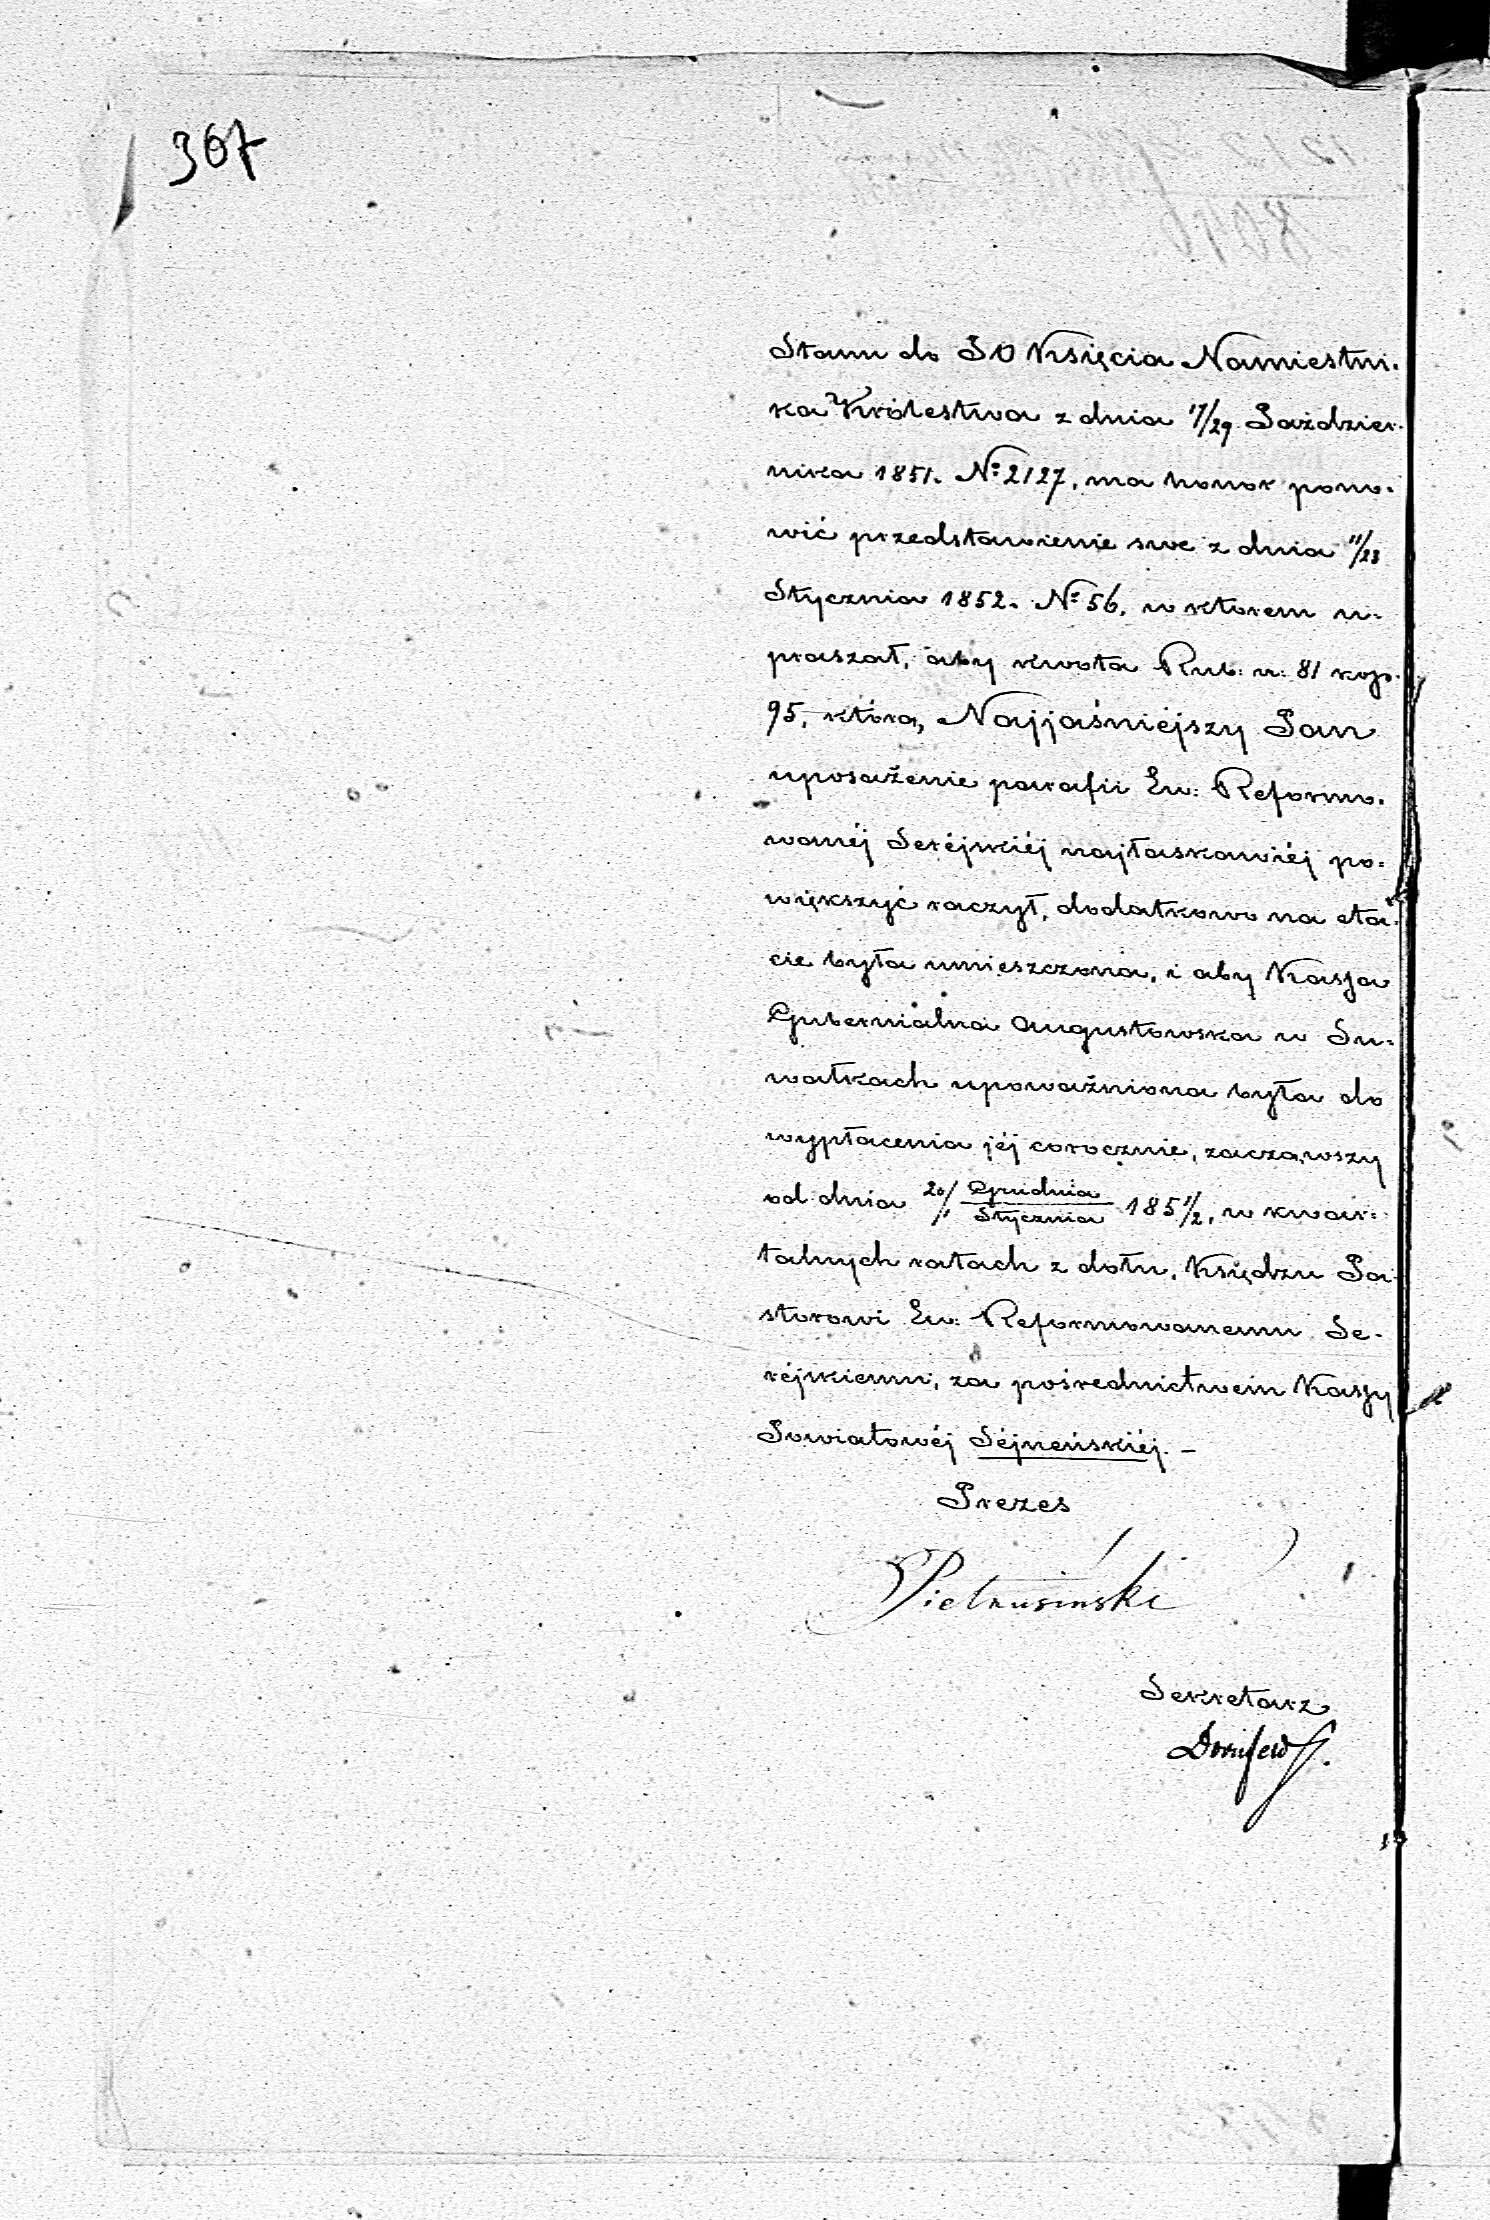 367
Stanu do JO Księcia Namiestni-
ka Królestwa z dnia 17/29 Paździer-
nika 1851. No 2127, ma honor pono-
wić przedstawienie swe z dnia 11/23
Stycznia 1852. No 56, w którem u-
praszał, aby kwota Rub: sr: 81 kop:
95, którą Najjaśniéjszy Pan
uposażenie parafii Ew: Reformo-
wanéj Seréjskiéj najłaskawiéj po-
większyć raczył, dodatkowo na eta-
cie była umieszczona, i aby Kassa
Gubernialna Augustowska w Su-
wałkach upoważniona była do
wypłacenia jéj corocznie, zacząwszy
od dnia 20/1 Grudnia/Stycznia 185 1/2, w kwar-
talnych ratach z dołu, Księdzu Pa-
storowi Ew: Reformowanemu Se-
réjskiemu, za pośrednictwem Kassy
Powiatowéj Séjneńskiéj. –
Prezes
Pietrusiński
Sekretarz